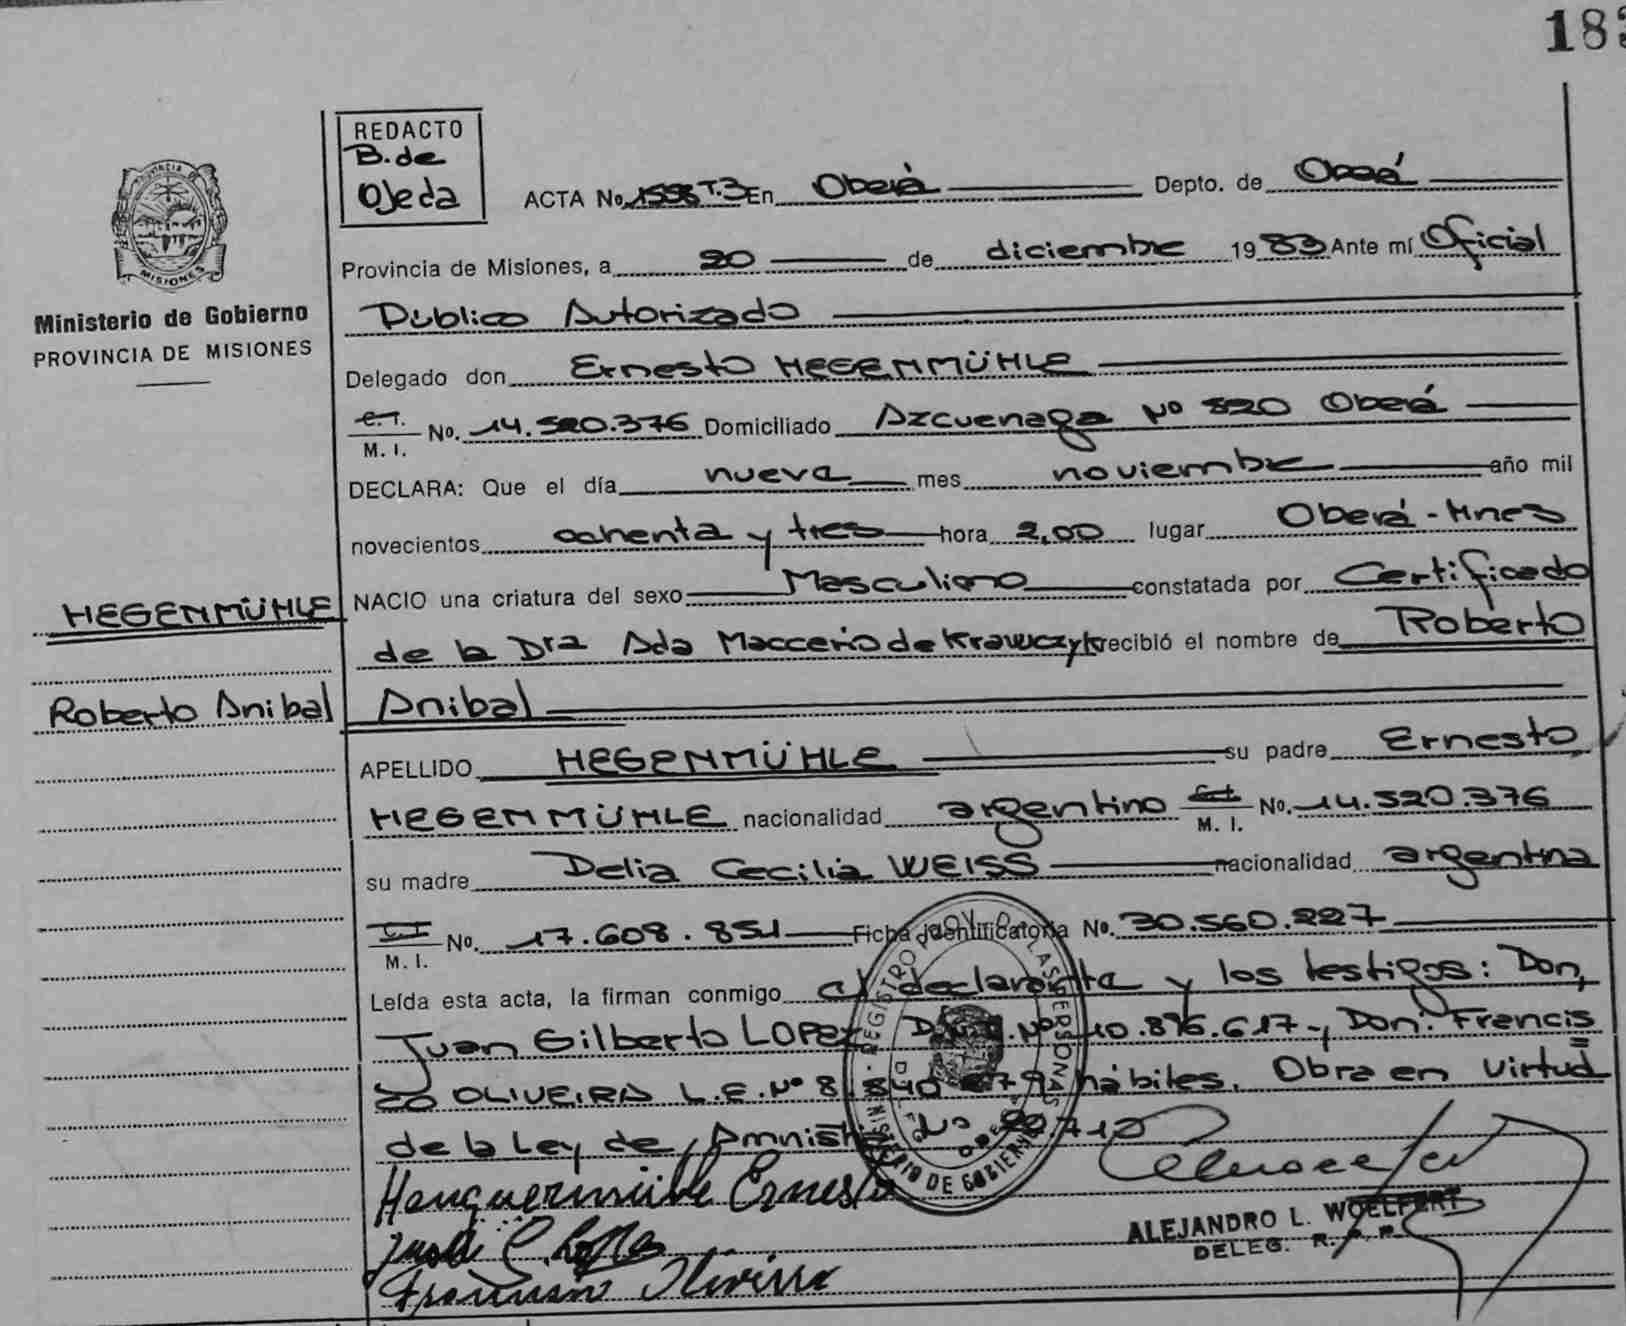 183
REDACTO
B. de
Ojeda
PROVINCIA DE
MISIONES
Ministerio de Gobierno
PROVINCIA DE MISIONES
ACTA No. 1598 T.3 En Oberá Depto. de Oberá
Provincia de Misiones, a 20 de diciembre 1983 Ante mí Oficial
Público Autorizado
Delegado don Ernesto HEGENMÜHLE
C.I.
M. I. No. 14.520.376 Domiciliado Azcuenaga Nº 820 Oberá
DECLARA: Que el día nueve mes noviembre año mil
novecientos ochenta y tres hora 2,00 lugar Oberá - Mnes
NACIO una criatura del sexo Masculino constatada por Certificado
de la Dra Ada Macceris de Krawczyk recibió el nombre de Roberto
Anibal
HEGENMÜHLE
Roberto Anibal
APELLIDO HEGENMÜHLE su padre Ernesto
HEGENMÜHLE nacionalidad argentino M. I. No. 14.520.376
su madre Delia Cecilia WEISS nacionalidad argentina
M. I. No. 17.608.851 Ficha identificatoria No. 30.560.227
Leída esta acta, la firman conmigo el declarante y los testigos: Don,
Juan Gilberto LOPEZ D.N.I. Nº 10.896.617 y Don: Francis
co OLIVEIRA L.E. Nº 8.840.679 hábiles. Obra en virtud
de la Ley de Amnistía No 22.410
REGISTRO LAS PERSONAS
MINISTERIO DE GOBIERNO
Ernesto
ALEJANDRO L. WOELFERT
DELEG. R. P. P.